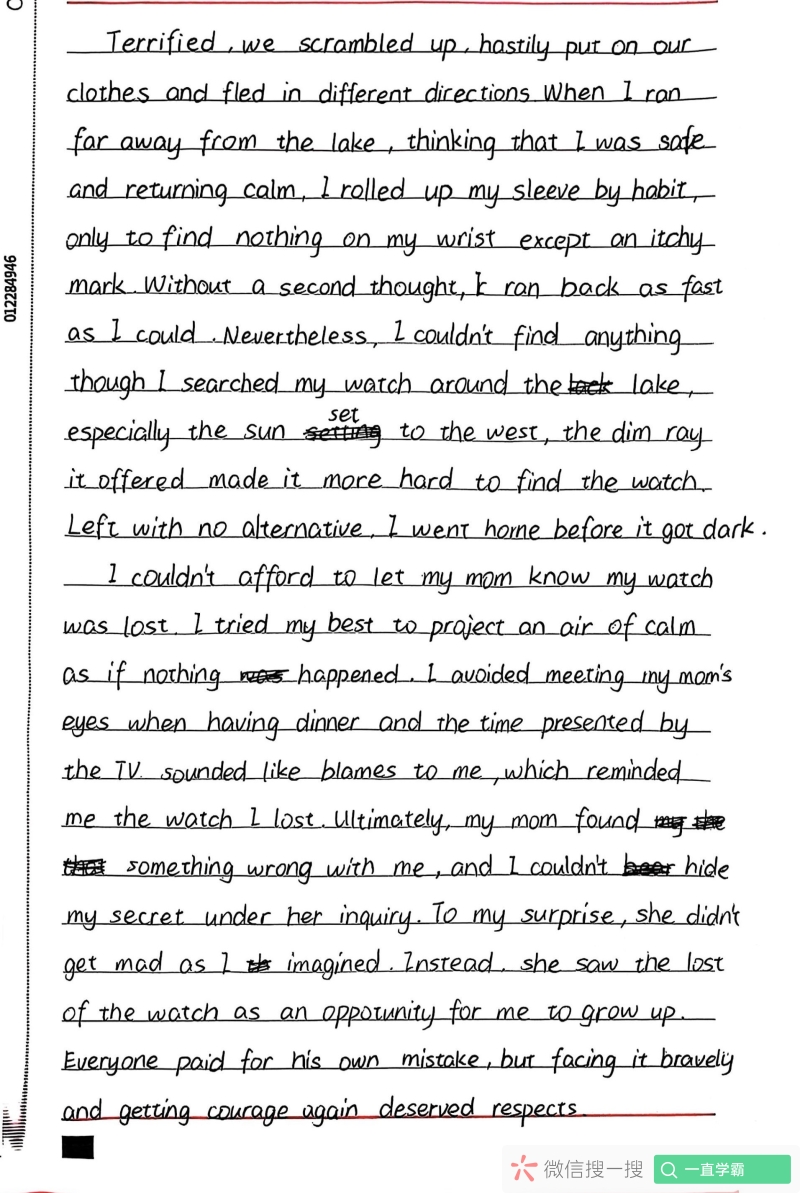 012284946
Terrified, we scrambled up, hastily put on our
clothes and fled in different directions. When I ran
far away from the lake, thinking that I was safe
and returning calm, I rolled up my sleeve by habit,
only to find nothing on my wrist except an itchy
mark. Without a second thought, I ran back as fast
as I could. Nevertheless, I couldn't find anything
though I searched my watch around the lake,
especially the sun set to the west, the dim ray
it offered made it more hard to find the watch.
Left with no alternative, I went home before it got dark.
I couldn't afford to let my mom know my watch
was lost. I tried my best to project an air of calm
as if nothing was happened. I avoided meeting my mom's
eyes when having dinner and the time presented by
the TV. sounded like blames to me, which reminded
me the watch I lost. Ultimately, my mom found
something wrong with me, and I couldn't hide
my secret under her inquiry. To my surprise, she didn't
get mad as I imagined. Instead, she saw the lost
of the watch as an oppotunity for me to grow up.
Everyone paid for his own mistake, but facing it bravely
and getting courage again deserved respects.
微信搜一搜 一直学霸